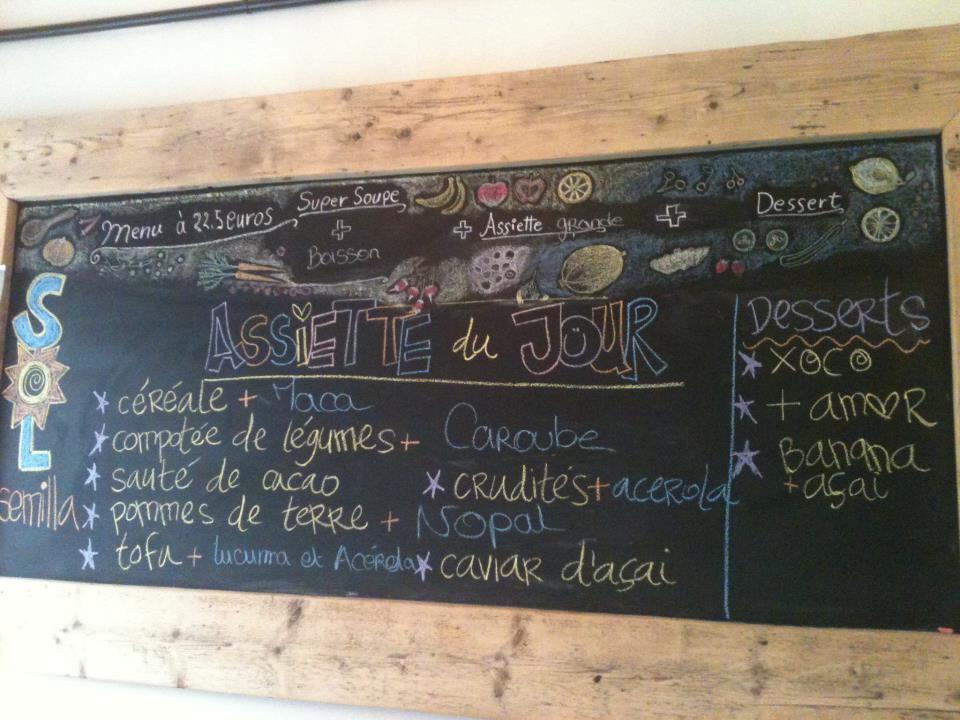 Menu à 22.5 euros
Super Soupe
+
Boisson
+ Assiette grande
+
Dessert
SOL
semilla
ASSiETTE du JOUR
* céréale + Maca
* compotée de légumes + CAROUBE
* sauté de cacao
* CRUDITÉS + acerola
* pommes de terre + NOPAL
* tofu + lucuma et Acérola
* CAVIAR d'açai
DESSERTS
* XOCO
* + amoR
* BANANA
+ açai